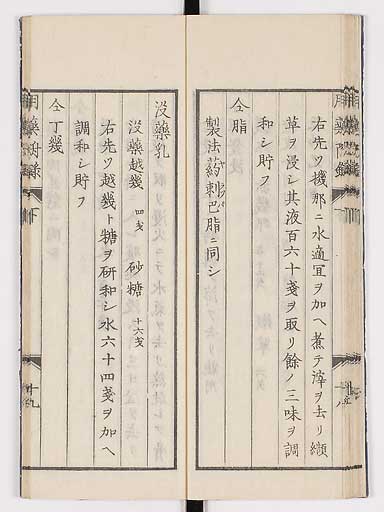 右先ツ機那ニ水適宜ヲ加ヘ煮テ滓ヲ去リ纈
草ヲ浸シ其液百六十戔ヲ取リ餘ノ三味ヲ調
和シ貯フ
仝脂
製法葯刺巴脂ニ同シ
没藥乳
没藥越幾 四戔 砂糖 十六戔
右先ツ越幾ト糖ヲ研和シ水六十四戔ヲ加ヘ
調和シ貯フ
仝丁幾
十九